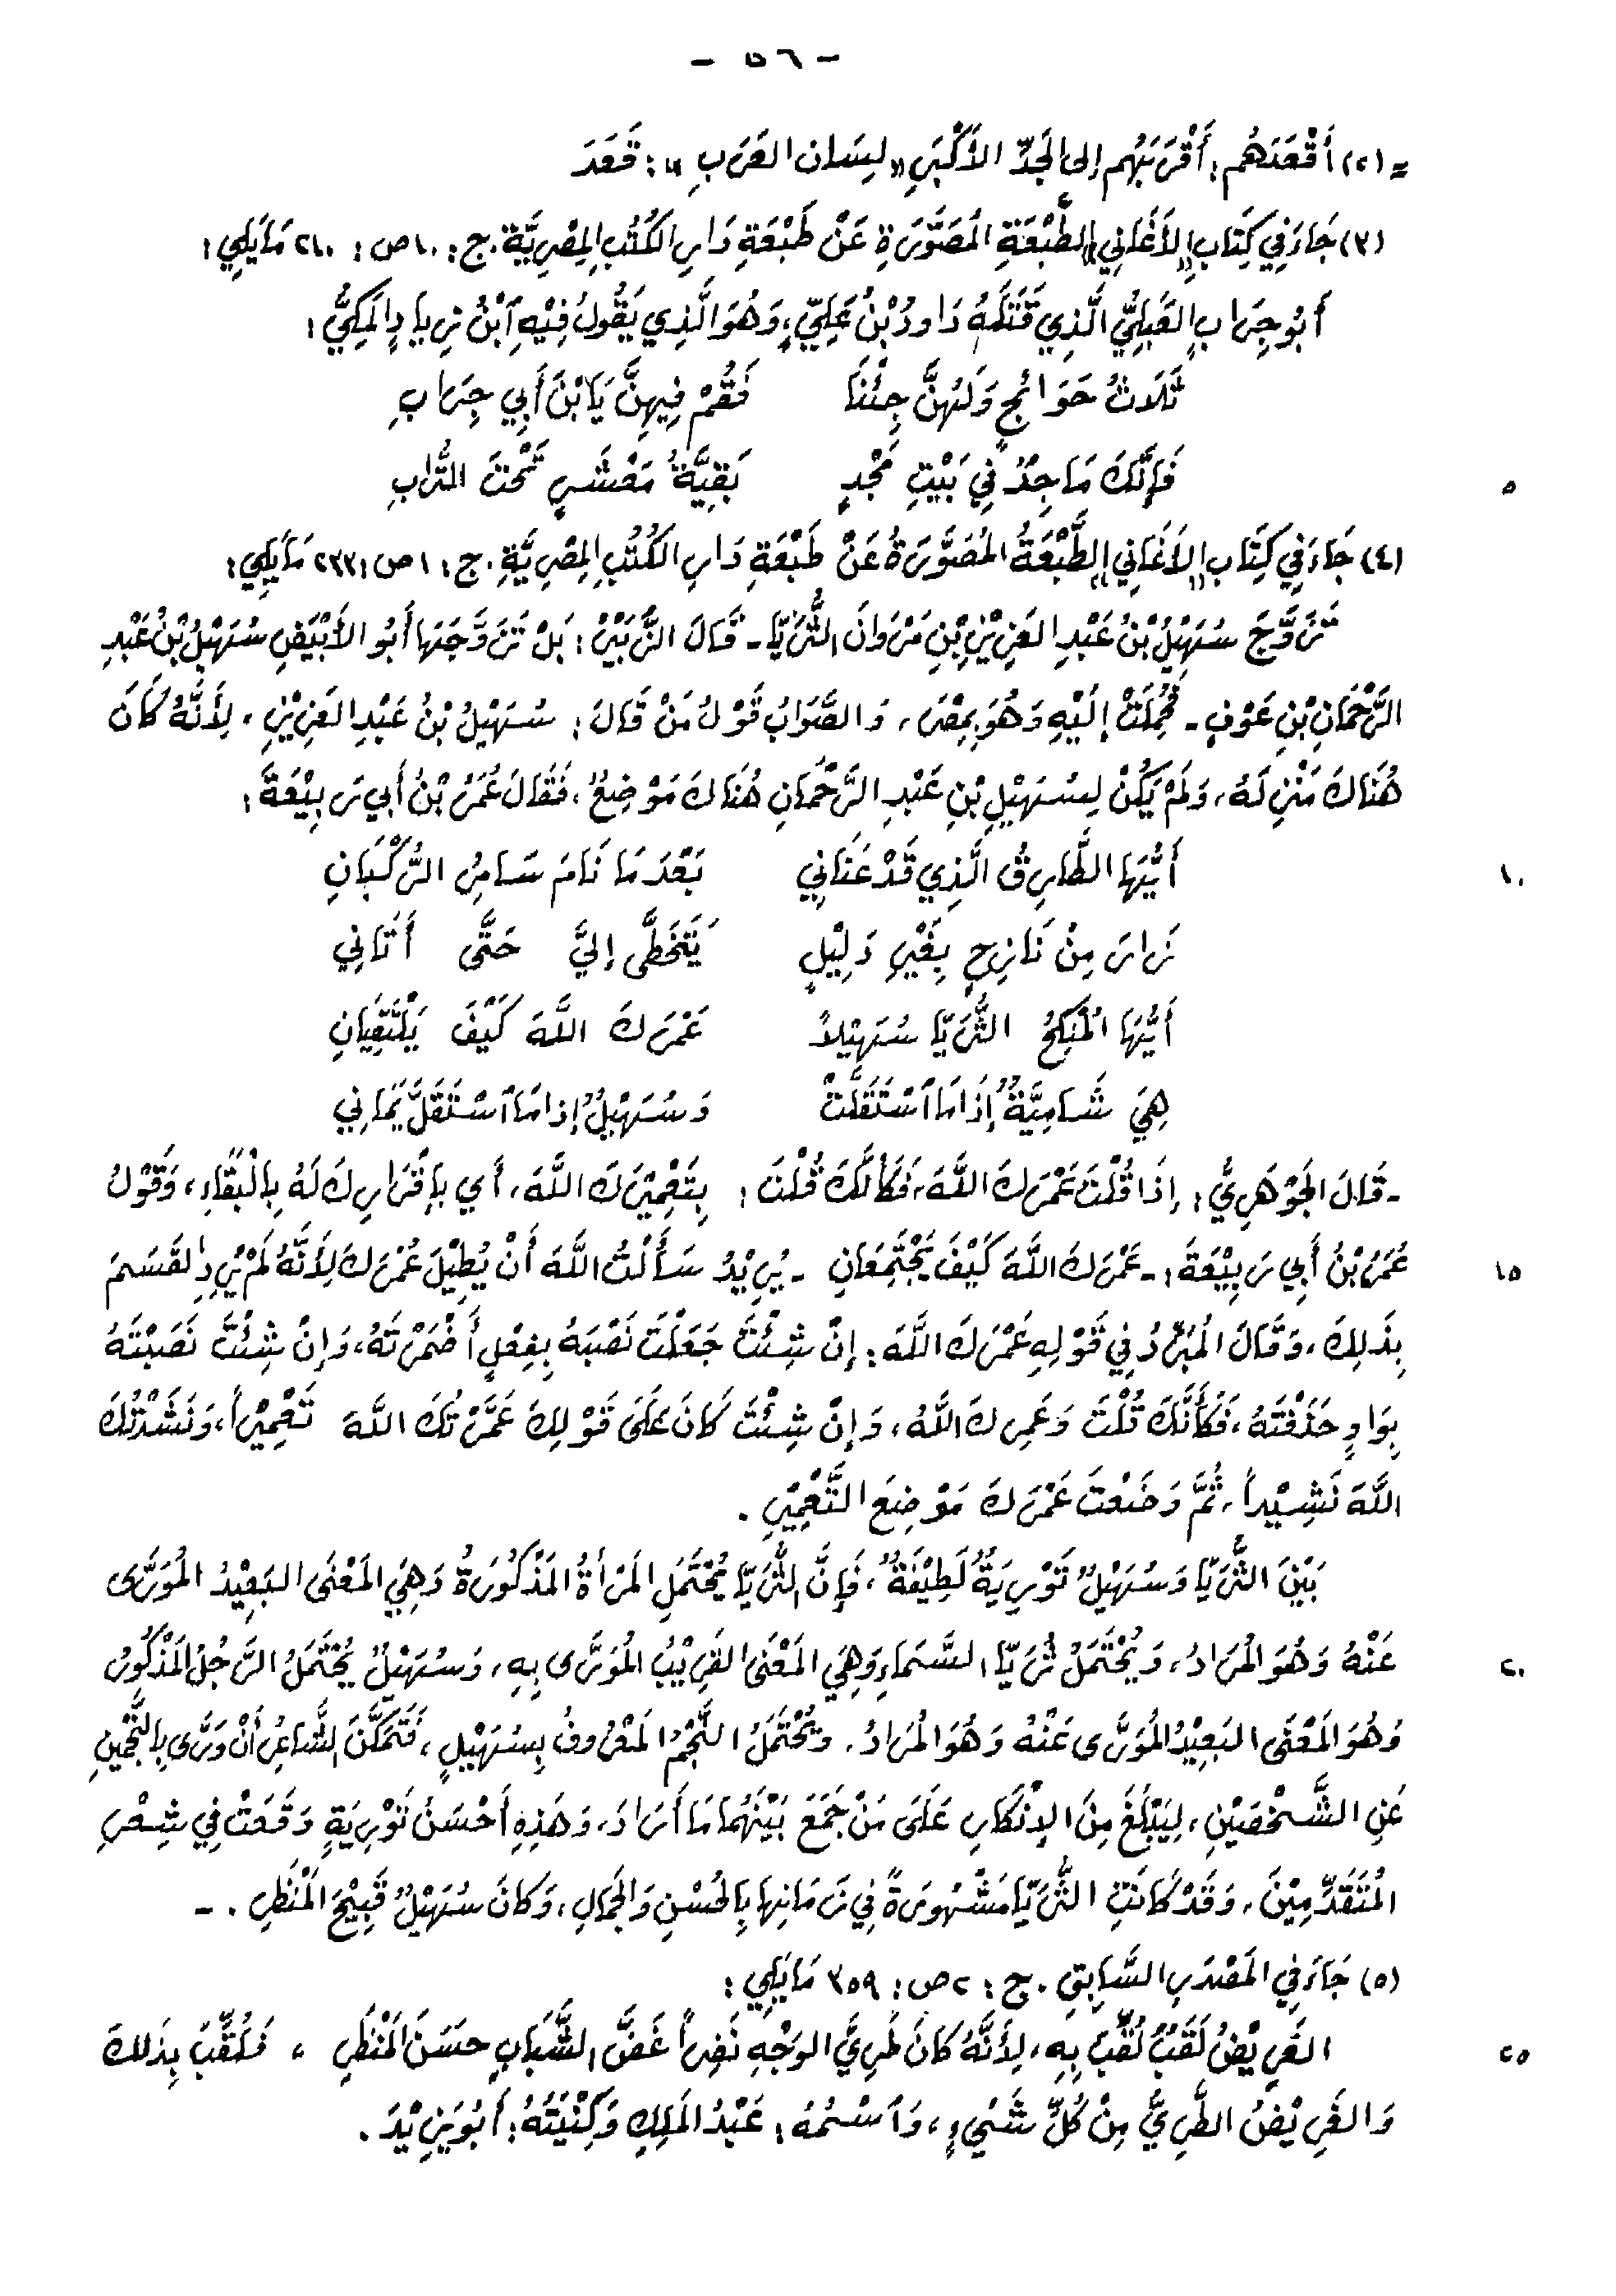 - ٥٦ -
= (٢) أَقْعَدَهُم : أَقْرَبَهُم إلى الجَدِّ الأَكْبَرِ «لِسَان العَرَبِ» : قَعَدَ
(٣) جَاءَ فِي كِتَابِ «الأَغَانِي» الطَّبْعَةِ المُصَوَّرَةِ عَنْ طَبْعَةِ دَارِ الكُتُبِ المِصْرِيَّة . ج : ١٠ ص : ٢٦٠ مَا يَلِي :
أَبُو جِرَابٍ العَبْلِيُّ الَّذِي قَتَلَهُ دَاودُ بْنُ عَلِيٍّ ، وَهُوَ الَّذِي يَقُولُ فِيْهِ ٱبْنُ زِيادٍ المَكِّيُّ :
ثَلاثُ حَوَائِجٍ وَلَهُنَّ جِئْنَا فَقُمْ فِيهِنَّ يَا ابْنَ أَبِي جِرَابِ
فَإِنَّكَ مَاجِدٌ فِي بَيْتِ مَجْدٍ بَقِيَّةُ مَعْشَرٍ تَحْتَ التُّرابِ
٥
(٤) جَاءَ فِي كِتَابِ «الأَغَانِي» الطَّبْعَةُ المُصَوَّرَةُ عَنْ طَبْعَةِ دَارِ الكُتُبِ المِصْرِيَّةِ . ج : ١ ص : ٢٣٣ مَا يَلِي :
تَزَوَّجَ سُهَيْلُ بْنُ عَبْدِ العَزِيْزِ بْنِ مَرْوانَ الثُّرَيَّا - قَالَ الزُّبَيْرُ : بَلْ تَزَوَّجَهَا أَبُو الأَبْيَضِ سُهَيْلُ بْنُ عَبْدِ
الرَّحْمَانِ بْنِ عَوْفٍ - فَحُمِلَتْ إِلَيْهِ وَهُوَ بِمِصْرَ ، وَالصَّوَابُ قَوْلُ مَنْ قَالَ : سُهَيْلُ بْنُ عَبْدِ العَزِيْزِ ، لِأَنَّهُ كَانَ
هُنَاكَ مَنْزِلَهُ ، وَلَمْ يَكُنْ لِسُهَيْلِ بْنِ عَبْدِ الرَّحْمَانِ هُنَاكَ مَوْضِعٌ ، فَقَالَ عُمَرُ بْنُ أَبِي رَبِيْعَةَ :
أَيُّهَا الطَّارِقُ الَّذِي قَدْ عَنَانِي بَعْدَ مَا نَامَ سَامِرُ الرُّكْبَانِ
١٠
زَارَ مِنْ نَازِحٍ بِغَيْرِ دَلِيْلٍ يَتَخَطَّى إِليَّ حَتَّى أَتَانِي
أَيُّهَا المُنْكِحُ الثُّرَيَّا سُهَيْلاً عَمْرَكَ اللَّهَ كَيْفَ يَلْتَقِيَانِ
هِيَ شَامِيَّةٌ إِذَا مَا ٱسْتَقَلَّتْ وَسُهَيْلٌ إِذا مَا ٱسْتَقَلَّ يَمَانِي
- قَالَ الجَوْهَرِيُّ : إِذَا قُلْتَ عَمْرَكَ اللَّهَ ، فَكَأَنَّكَ قُلْتَ : بِتَعْمِيْرِكَ اللَّهَ ، أَي بِإِقْرَارِكَ لَهُ بِالْبَقَاءِ ، وَقَوْلُ
عُمَرُ بْنُ أَبِي رَبِيْعَةَ : - عَمْرَكَ اللَّهَ كَيْفَ يَجْتَمِعَانِ - يُرِيْدُ سَأَلْتُ اللَّهَ أَنْ يُطِيْلَ عُمْرَكَ لِأَنَّهُ لَمْ يُرِدِ القَسَمَ
١٥
بِذَلِكَ ، وَقَالَ المُبَرِّدُ فِي قَوْلِهِ عَمْرَكَ اللَّهَ : إِنْ شِئْتَ جَعَلْتَ نَصْبَهُ بِفِعْلٍ أَضْمَرْتَهُ ، وَإِنْ شِئْتَ نَصَبْتَهُ
بِوَاوٍ حَذَفْتَهُ ، فَكَأَنَّكَ قُلْتَ وَعَمْرِكَ اللَّهُ ، وَإِنْ شِئْتَ كَانَ عَلَى قَوْلِكَ عَمَّرْتُكَ اللَّهَ تَعْمِيْراً ، وَنَشَدْتُكَ
اللَّهَ نَشِيْداً ، ثُمَّ وَضَعْتَ عَمْرَكَ مَوْضِعَ التَّعْمِيْرِ .
بَيْنَ الثُّرَيَّا وَسُهَيْلٍ تَوْرِيَةٌ لَطِيْفَةٌ ، فَإِنَّ الثُّرَيَّا يُحْتَمَلِ المَرْأَةُ المَذْكُورَةُ وَهِيَ المَعْنَى البَعِيْدُ المُوَرَّى
عَنْهُ وَهُوَ المُرَادُ ، وَيُحْتَمَلُ ثُرَيَّا السَّمَاءِ وَهِيَ المَعْنَى القَرِيْبُ المُوَرَّى بِهِ ، وَسُهَيْلٌ يُحْتَمَلُ الرَّجُلَ المَذْكُورُ
٢٠
وَهُوَ المَعْنَى البَعِيْدُ المُوَرَّى عَنْهُ وَهُوَ المُرَادُ . وَيُحْتَمَلُ النَّجْمُ المَعْرُوفُ بِسُهَيْلٍ ، فَتَمَكَّنَ الشَّاعِرُ أَنْ وَرَّى بِالنَّجْمَيْنِ
عَنِ الشَّخْصَيْنِ ، لِيَبْلُغَ مِنَ الإِنْكَارِ عَلَى مَنْ جَمَعَ بَيْنَهُمَا مَا أَرَادَ ، وَهَذِهِ أَحْسَنُ تَوْرِيَةٍ وَقَعَتْ فِي شِعْرِ
المُتَقَدِّمِيْنَ ، وَقَدْ كَانَتِ الثُّرَيَّا مَشْهُورَةً فِي زَمَانِهَا بِالحُسْنِ وَالجَمَالِ ، وَكَانَ سُهَيْلٌ قَبِيْحَ المَنْظَرِ . -
(٥) جَاءَ فِي المَصْدَرِ السَّابِقِ . ج : ٢ ص : ٣٥٩ مَا يَلِي :
الغَرِيْضُ لَقَبٌ لُقِّبَ بِهِ ، لِأَنَّهُ كَانَ طَرِيَّ الوَجْهِ نَضِراً غَضَّ الشَّبَابِ حَسَنَ المَنْظَرِ ، فَلُقِّبَ بِذَلكَ
٢٥
وَالغَرِيْضُ الطَّرِيُّ مِنْ كُلِّ شَيْءٍ ، وَٱسْمُهُ : عَبْدُ المَلِكِ وَكُنْيَتَهُ : أَبُو يَزِيْدَ .